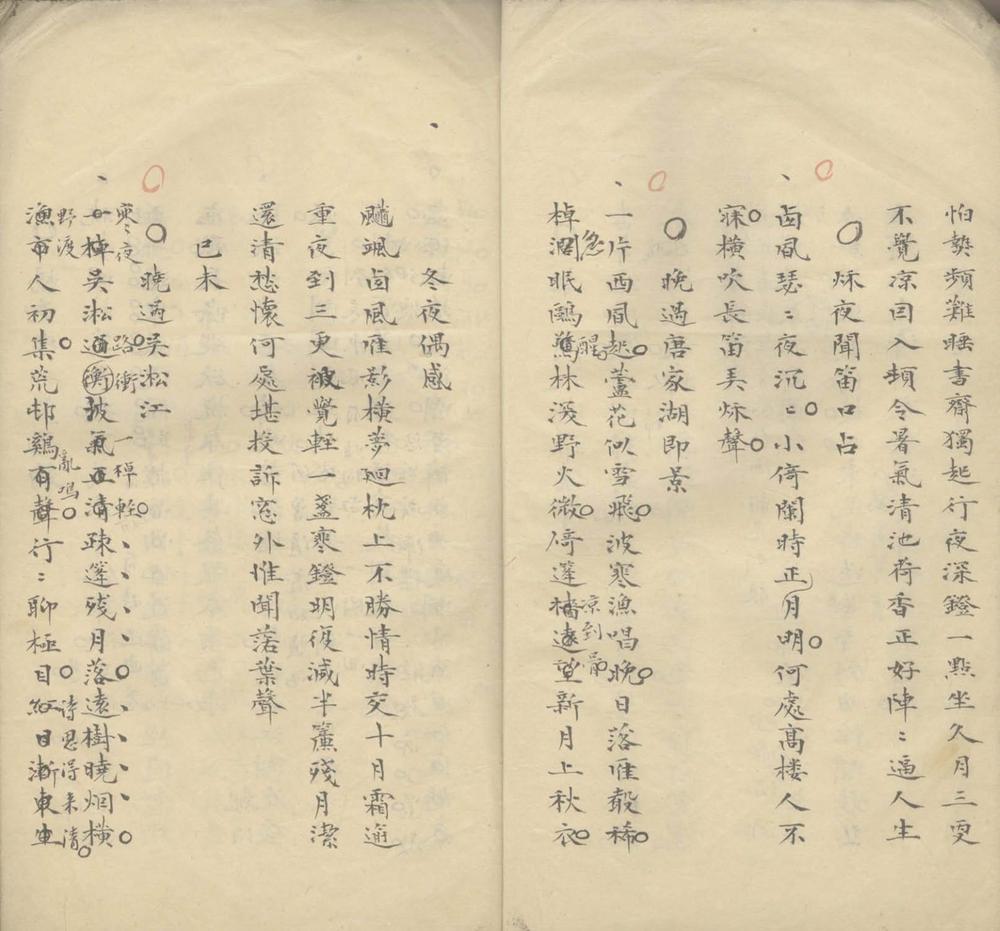 怕熱頻難睡書齋獨起行夜深鐙一點坐久月三更
不覺凉曰入頓令暑氣清池荷香正好陣〻逼人生
秌夜聞笛口占
卤風瑟〻夜沉〻小倚闌時正月明何處高楼人不
寐橫吹長笛弄秌聲
晚過唐家湖即景
一片西風起蘆花似雪飛波寒漁唱晚日落雁聲稀
急
醒
凉到骨
棹濶眠鷗驚林深野火微倚篷樯遠望新月上秋衣
冬夜偶感
颸颯卤風雁影橫夢迴枕上不勝情時交十月霜逾
重夜到三更被覺輕一盞寒鐙明復滅半簾殘月潔
還清愁懷何處堪投訴窓外惟聞落葉聲
己未
曉過吳淞江
寒夜
路衝
一棹輕
一棹吳淞通衡波氣正清疎篷残月落遠樹曉烟橫
野渡
亂鳴
詩思得来清
漁市人初集荒邨鷄有聲行〻聊極目紅日漸東生